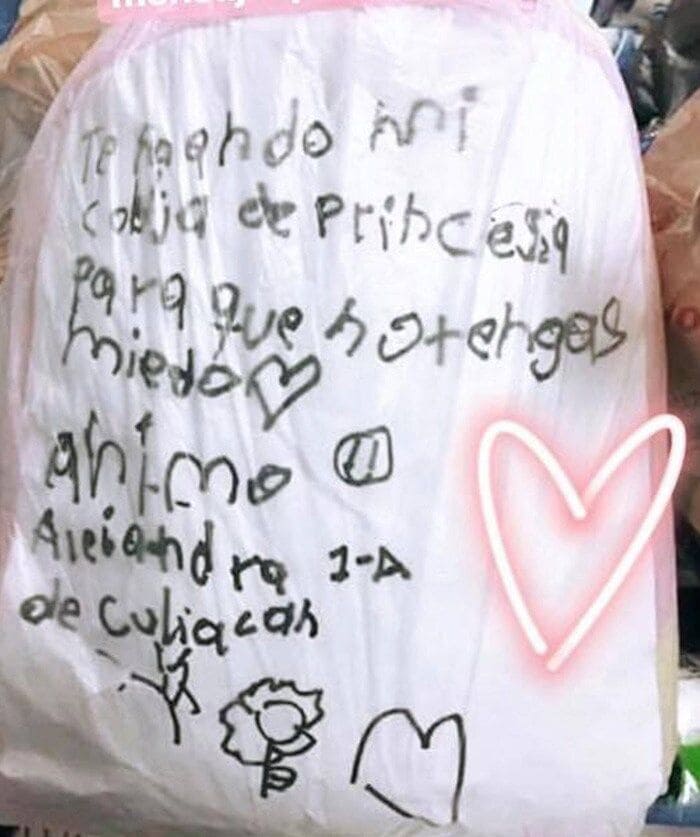 Te mando mi
cobija de princesa
para que no tengas
miedo
animo
Alejandra 1-A
de culiacan